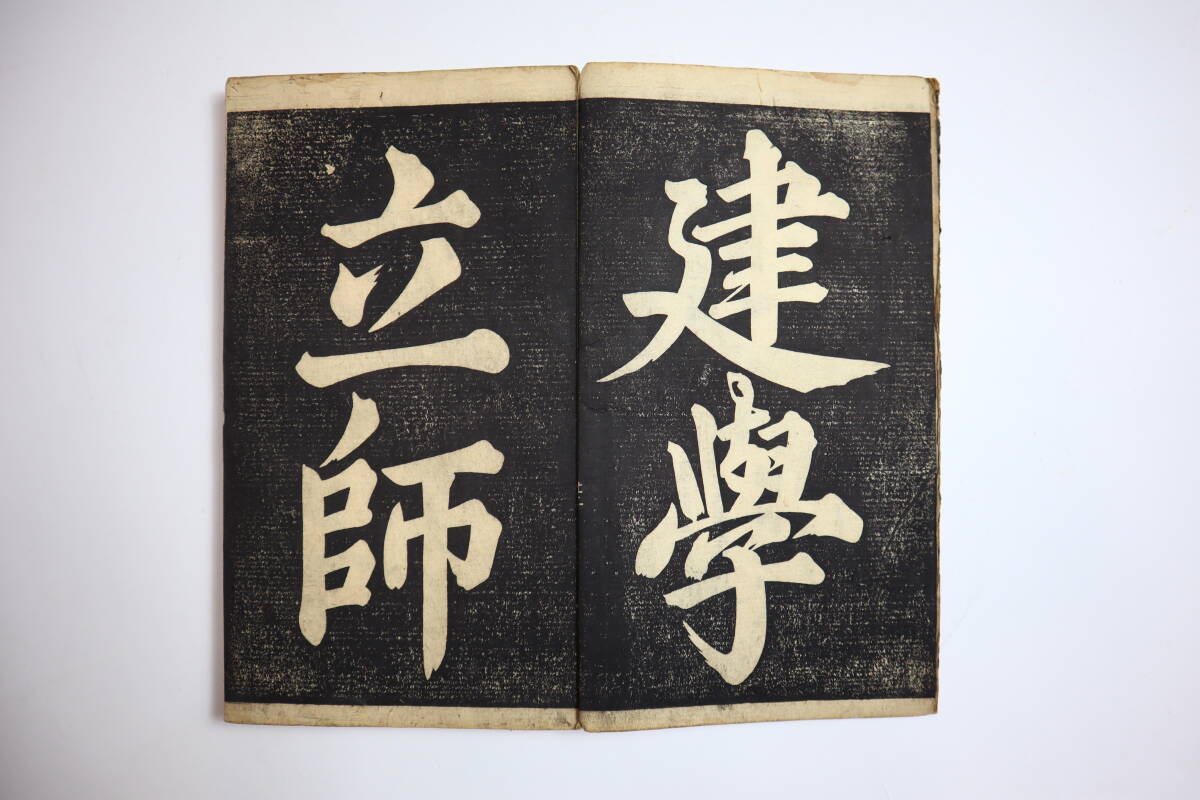 建學
立師